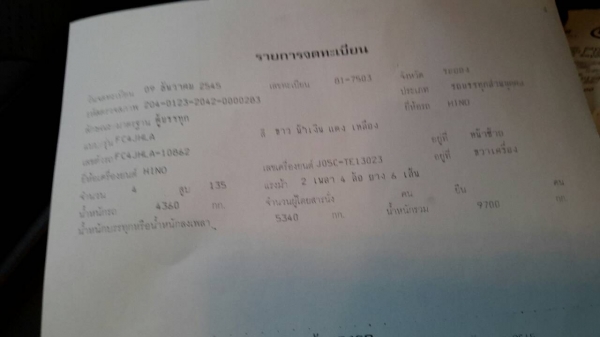 รายการจดทะเบียน
วันจดทะเบียน 09 ธันวาคม 2545 เลขทะเบียน 81-7503 จังหวัด ระยอง
รหัสตรวจสภาพ 204-0123-2042-0000283 ประเภท รถบรรทุกส่วนบุคคล
ลักษณะ/มาตรฐาน ตู้บรรทุก ยี่ห้อรถ HINO
แบบ/รุ่น FC4JHLA สี ขาว น้ำเงิน แดง เหลือง
เลขตัวรถ FC4JHLA-10862 อยู่ที่ หน้าซ้าย
ยี่ห้อเครื่องยนต์ HINO เลขเครื่องยนต์ J05C-TE13023 อยู่ที่ ขวาเครื่อง
จำนวน 4 สูบ 135 แรงม้า 2 เพลา 4 ล้อ ยาง 6 เส้น
น้ำหนักรถ 4360 กก. จำนวนผู้โดยสารนั่ง คน ยืน คน
น้ำหนักบรรทุกหรือน้ำหนักลงเพลา 5340 กก. น้ำหนักรวม 9700 กก.